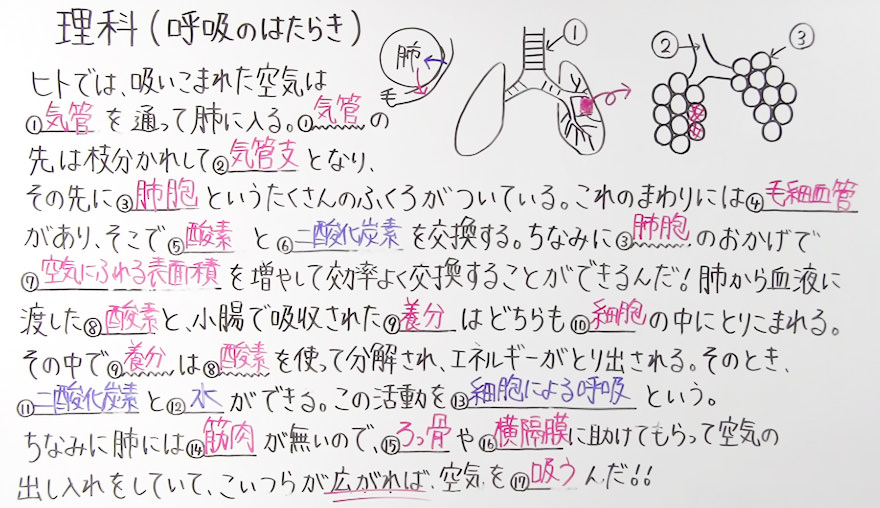 理科(呼吸のはたらき)
肺
毛
①
②
③
ヒトでは、吸いこまれた空気は
①気管を通って肺に入る。①気管の
先は枝分かれして②気管支となり、
その先に③肺胞というたくさんのふくろがついている。これのまわりには④毛細血管
があり、そこで⑤酸素と⑥二酸化炭素を交換する。ちなみに③肺胞のおかげで
⑦空気にふれる表面積を増やして効率よく交換することができるんだ!肺から血液に
渡した⑧酸素と、小腸で吸収された⑨養分はどちらも⑩細胞の中にとりこまれる。
その中で⑨養分は⑧酸素を使って分解され、エネルギーがとり出される。そのとき、
⑪二酸化炭素と⑫水ができる。この活動を⑬細胞による呼吸という。
ちなみに肺には⑭筋肉が無いので、⑮ろっ骨や⑯横隔膜に助けてもらって空気の
出し入れをしていて、こいつらが広がれば、空気を⑰吸うんだ!!